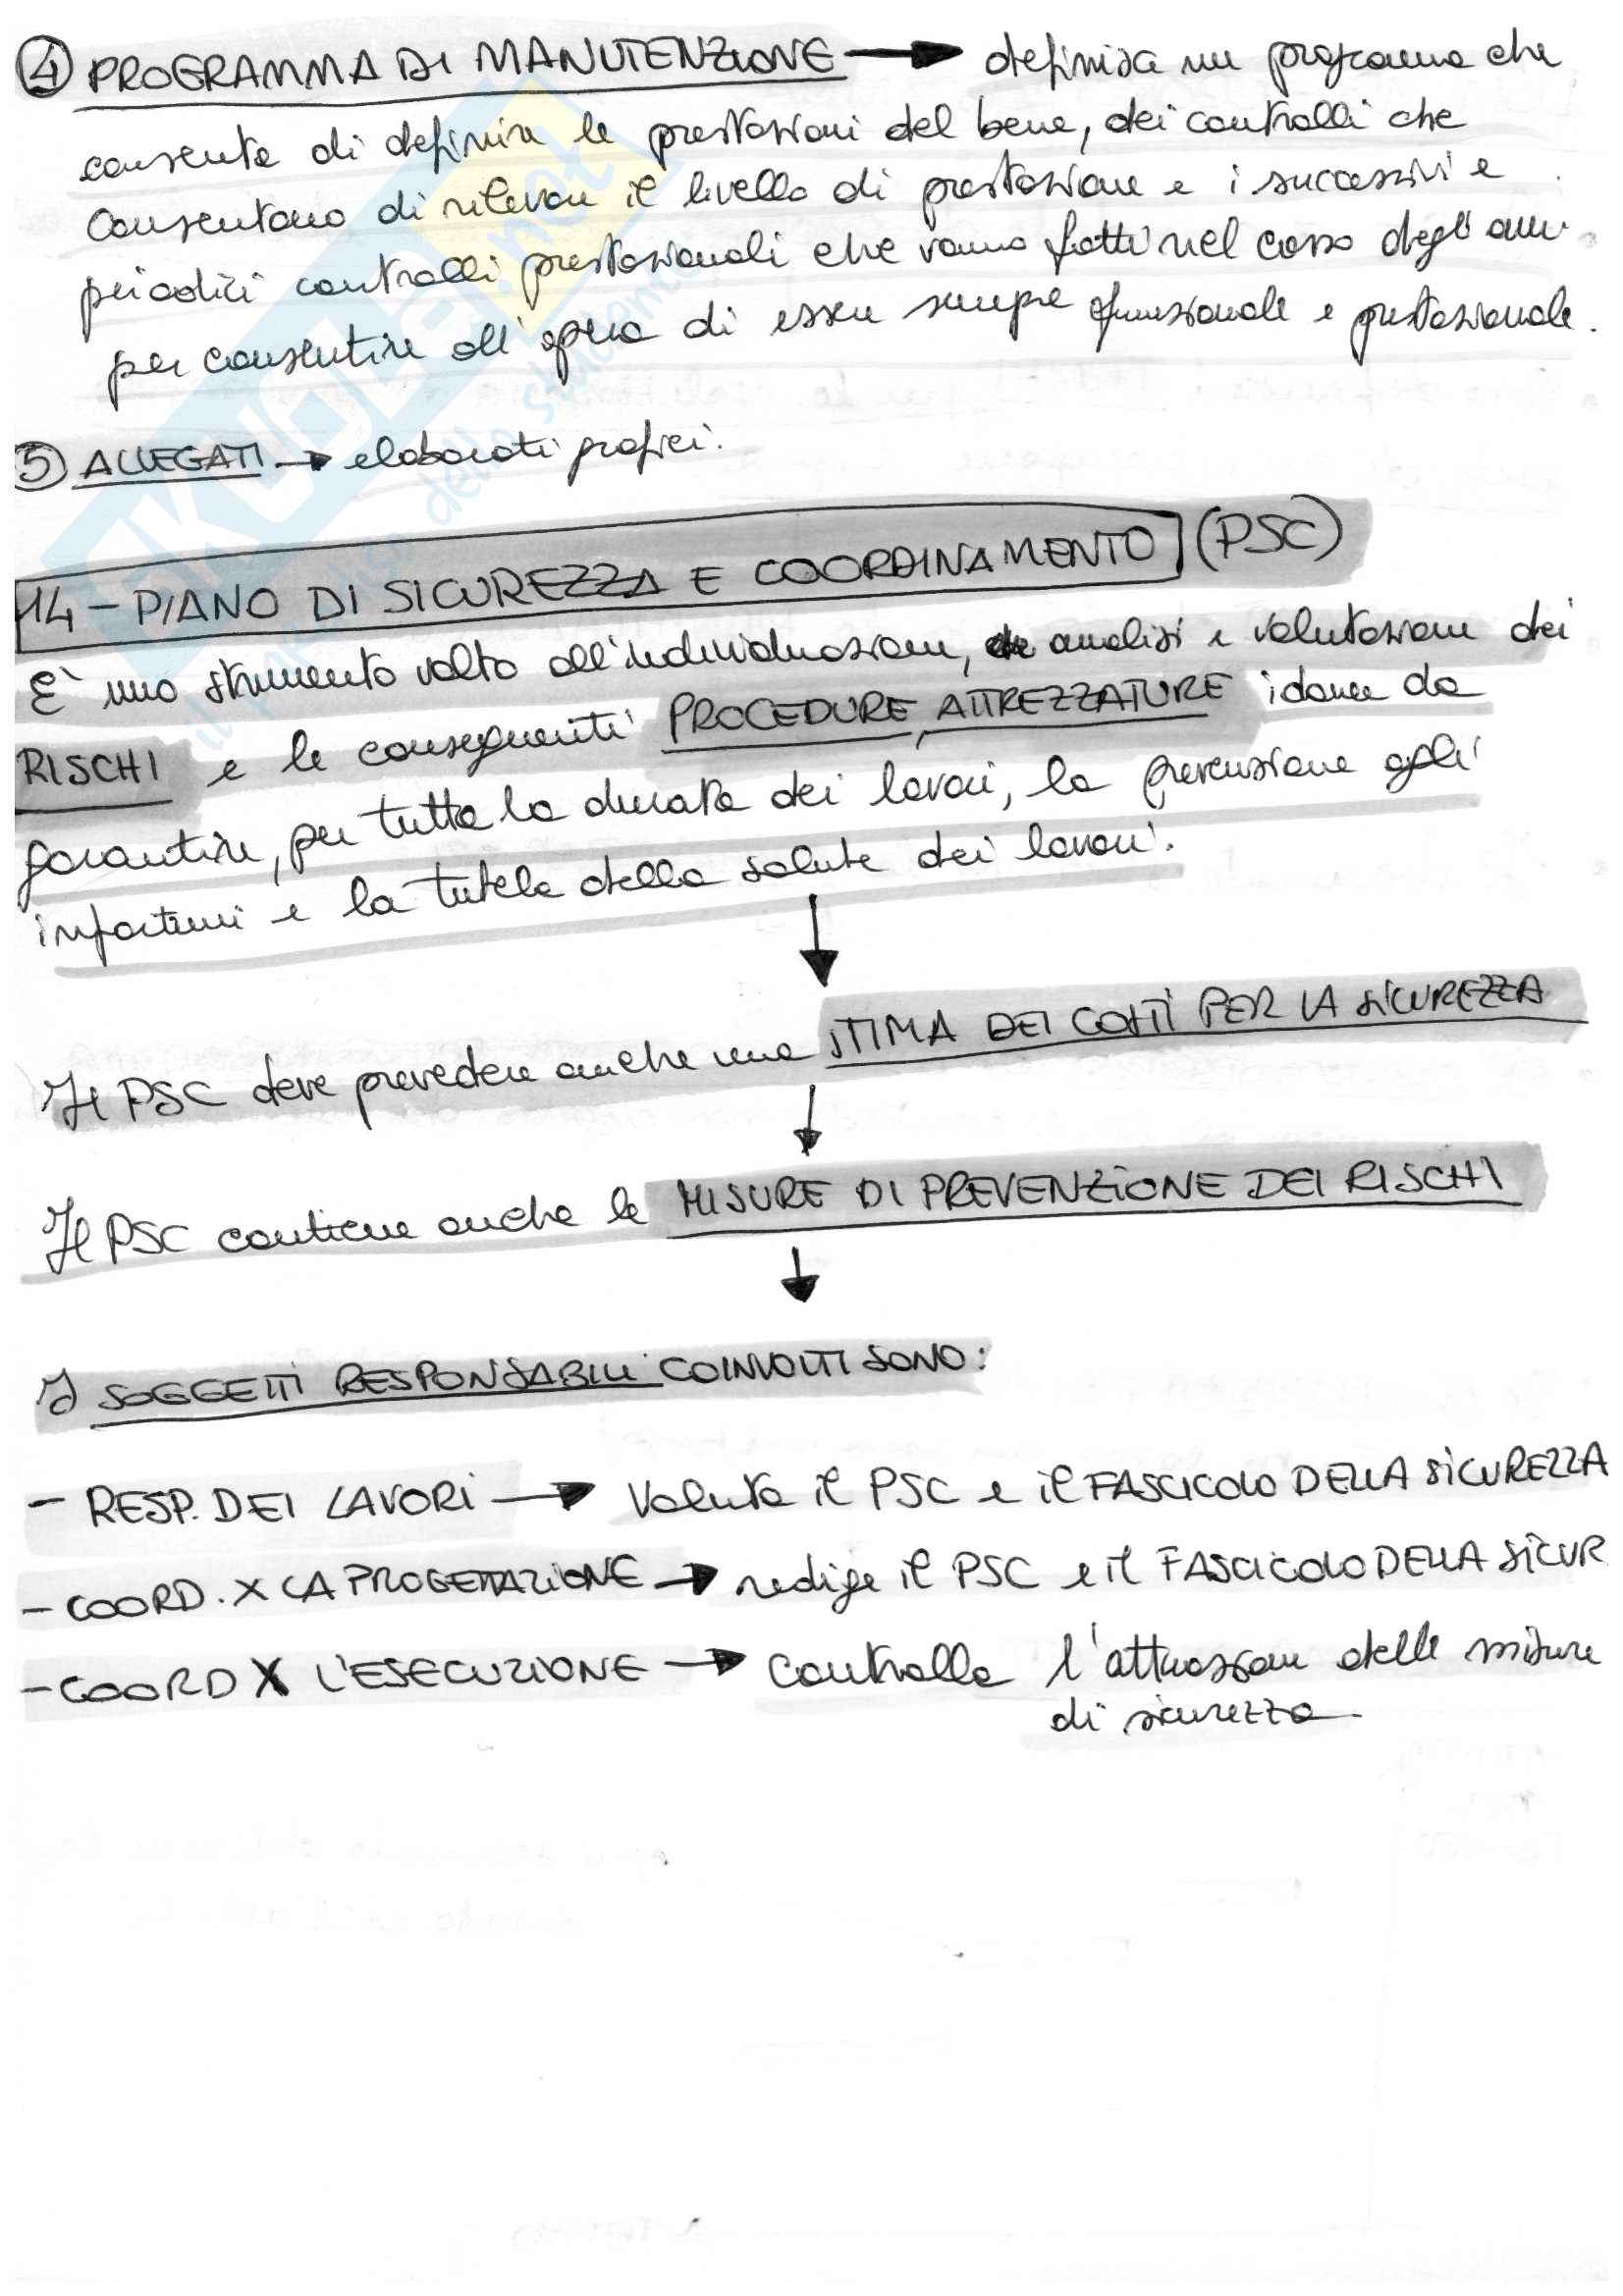 ④ PROGRAMMA DI MANUTENZIONE → definisce un programma che
consente di definire le prestazioni del bene, dei controlli che
consentono di rilevare il livello di prestazione e i successivi e
periodici controlli prestazionali che vanno fatti nel corso degli anni
per consentire all'opera di essere sempre funzionale e prestazionale.
⑤ ALLEGATI → elaborati grafici.
14 - PIANO DI SICUREZZA E COORDINAMENTO (PSC)
E' uno strumento volto all'individuazione, analisi e valutazione dei
RISCHI e le conseguenti PROCEDURE, ATTREZZATURE idonee da
garantire, per tutta la durata dei lavori, la prevenzione agli
infortuni e la tutela della salute dei lavori.
↓
Il PSC deve prevedere anche una STIMA DEI COSTI PER LA SICUREZZA
↓
Il PSC contiene anche le MISURE DI PREVENZIONE DEI RISCHI
↓
I SOGGETTI RESPONSABILI COINVOLTI SONO:
- RESP. DEI LAVORI → Valuta il PSC e il FASCICOLO DELLA SICUREZZA
- COORD. X LA PROGETTAZIONE → redige il PSC e il FASCICOLO DELLA SICUR
- COORD X L'ESECUZIONE → Controlla l'attuazione delle misure
di sicurezza